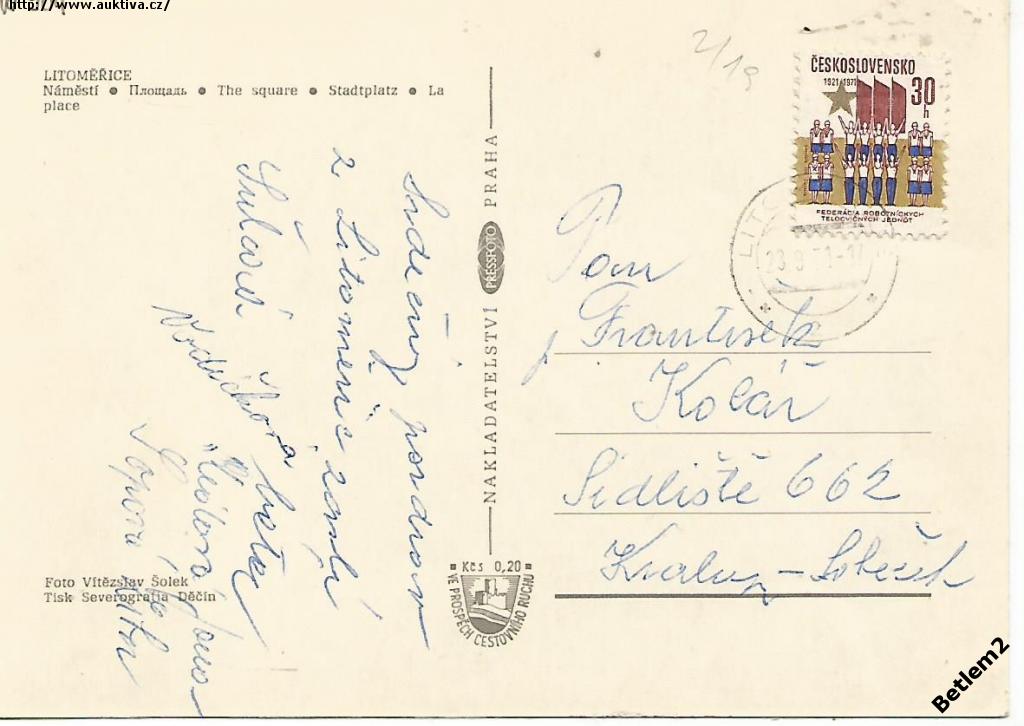 http://www.auktiva.cz/
LITOMĚŘICE
Náměstí • Площадь • The square • Stadtplatz • La
place
2/19
ČESKOSLOVENSKO
1921/1971
30
h
FEDERÁCIA ROBOTNÍCKYCH
TELOCVIČNÝCH JEDNOT
LITO
23.9.71-1
Srdečný pozdrav
z Litoměřic zasílá
Pan
František
Kolář
Sídliště 662
Kralupy - Lobeček
NAKLADATELSTVÍ PRESSFOTO PRAHA
Kčs 0,20
VE PROSPĚCH CESTOVNÍHO RUCHU
Foto Vítězslav Šolek
Tisk Severografia Děčín
Betlem2